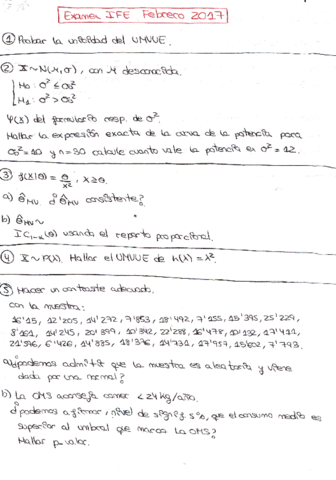 Examen IFE Febrero 2017
① Probar la unicidad del UMVUE.
② X~N(μ,σ), con μ desconocida.
H₀: σ² ≤ σ₀²
H₁: σ² > σ₀²
φ(x) del formulario resp. de σ².
Hallar la expresión exacta de la curva de la potencia para
σ₀²=10 y n=30 calcule cuanto vale la potencia en σ²=12.
③ f(x|θ) = θ/x², x ≥ θ.
a) θ̂MV ¿ θ̂MV consistente?
b) θ̂MV ~
IC₁₋α(θ) usando el reparto proporcional.
④ X~P(λ). Hallar el UMVUE de h(λ)=λ².
⑤ Hacer un contraste adecuado.
con la muestra:
16'15, 12'205, 14'272, 7'853, 18'492, 7'155, 15'395, 25'229,
8'161, 14'245, 20'899, 10'342, 22'288, 16'478, 10'132, 17'411,
21'376, 6'426, 14'885, 18'376, 14'731, 17'957, 15'602, 7'793.
a) ¿podemos admitir que la muestra es aleatoria y viene
dada por una normal?
b) La OMS aconseja comer < 24 kg/año.
¿podemos afirmar, nivel de signif. 5%, que el consumo medio es
superior al umbral que marca la OMS?
Hallar p-valor.